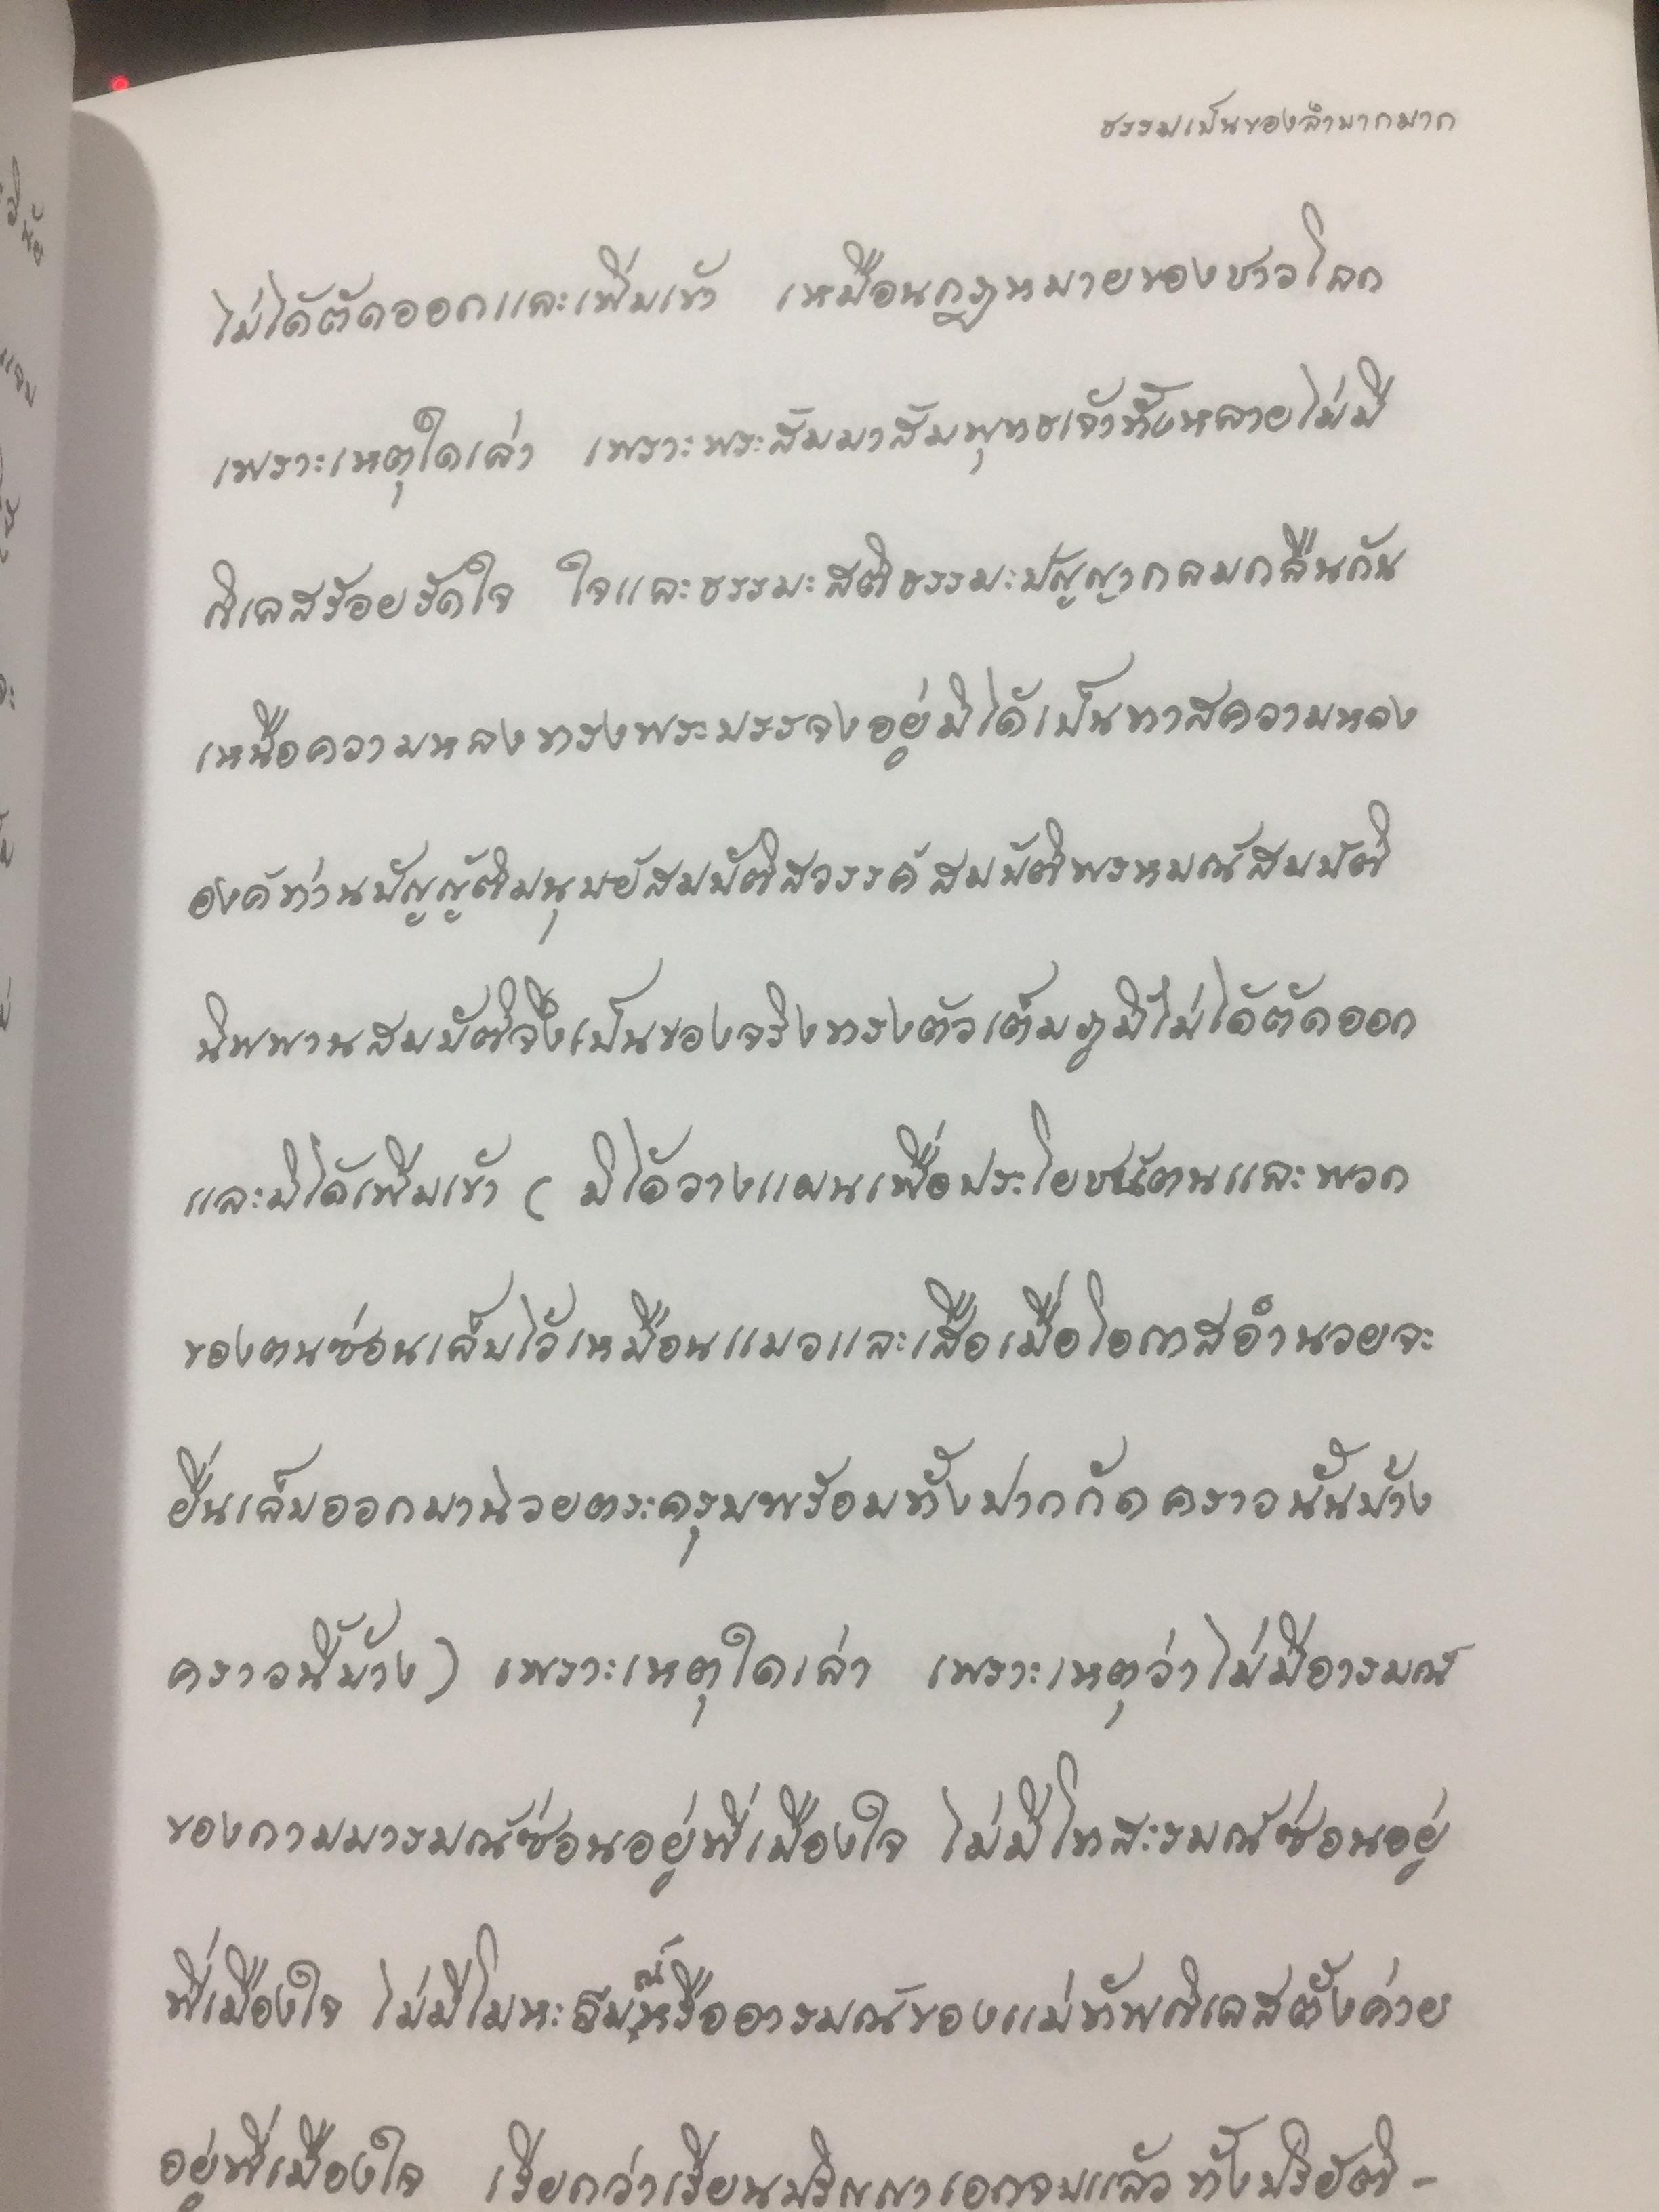 ธรรมเป็นของลำบากมาก
ไม่ได้ตัดออกและเพิ่มเข้า เหมือนกฎหมายของชาวโลก
เพราะเหตุใดเล่า เพราะพระสัมมาสัมพุทธเจ้าทั้งหลายไม่มี
กิเลสร้อยรัดใจ ใจและธรรมะสติธรรมะปัญญากลมกลืนกัน
เหนือความหลงทรงพระบรรจงอยู่มิได้เป็นทาสความหลง
องค์ท่านบัญญัติมนุษย์สมบัติสวรรค์สมบัติพรหมณ์สมบัติ
นิพพานสมบัติจึงเป็นของจริงทรงตัวเต็มภูมิไม่ได้ตัดออก
และมิได้เพิ่มเข้า ( มิได้วางแผนเพื่อประโยชน์ตนและพวก
ของตนซ่อนเล็บไว้เหมือนแมวและเสือเมื่อโอกาสอำนวยจะ
ยื่นเล็บออกมาช่วยตระครุบพร้อมทั้งปากกัดคราวนั้นบ้าง
คราวนี้บ้าง) เพราะเหตุใดเล่า เพราะเหตุว่าไม่มีอารมณ์
ของกามมารมณ์ซ่อนอยู่ที่เมืองใจ ไม่มีโทสะรมณ์ซ่อนอยู่
ที่เมืองใจ ไม่มีโมหะรมณ์หรืออารมณ์ของแม่ทัพกิเลสตั้งค่าย
อยู่ที่เมืองใจ เรียกว่าเรียนปริญญาเอกจบแล้วทั้งปริยัติ-